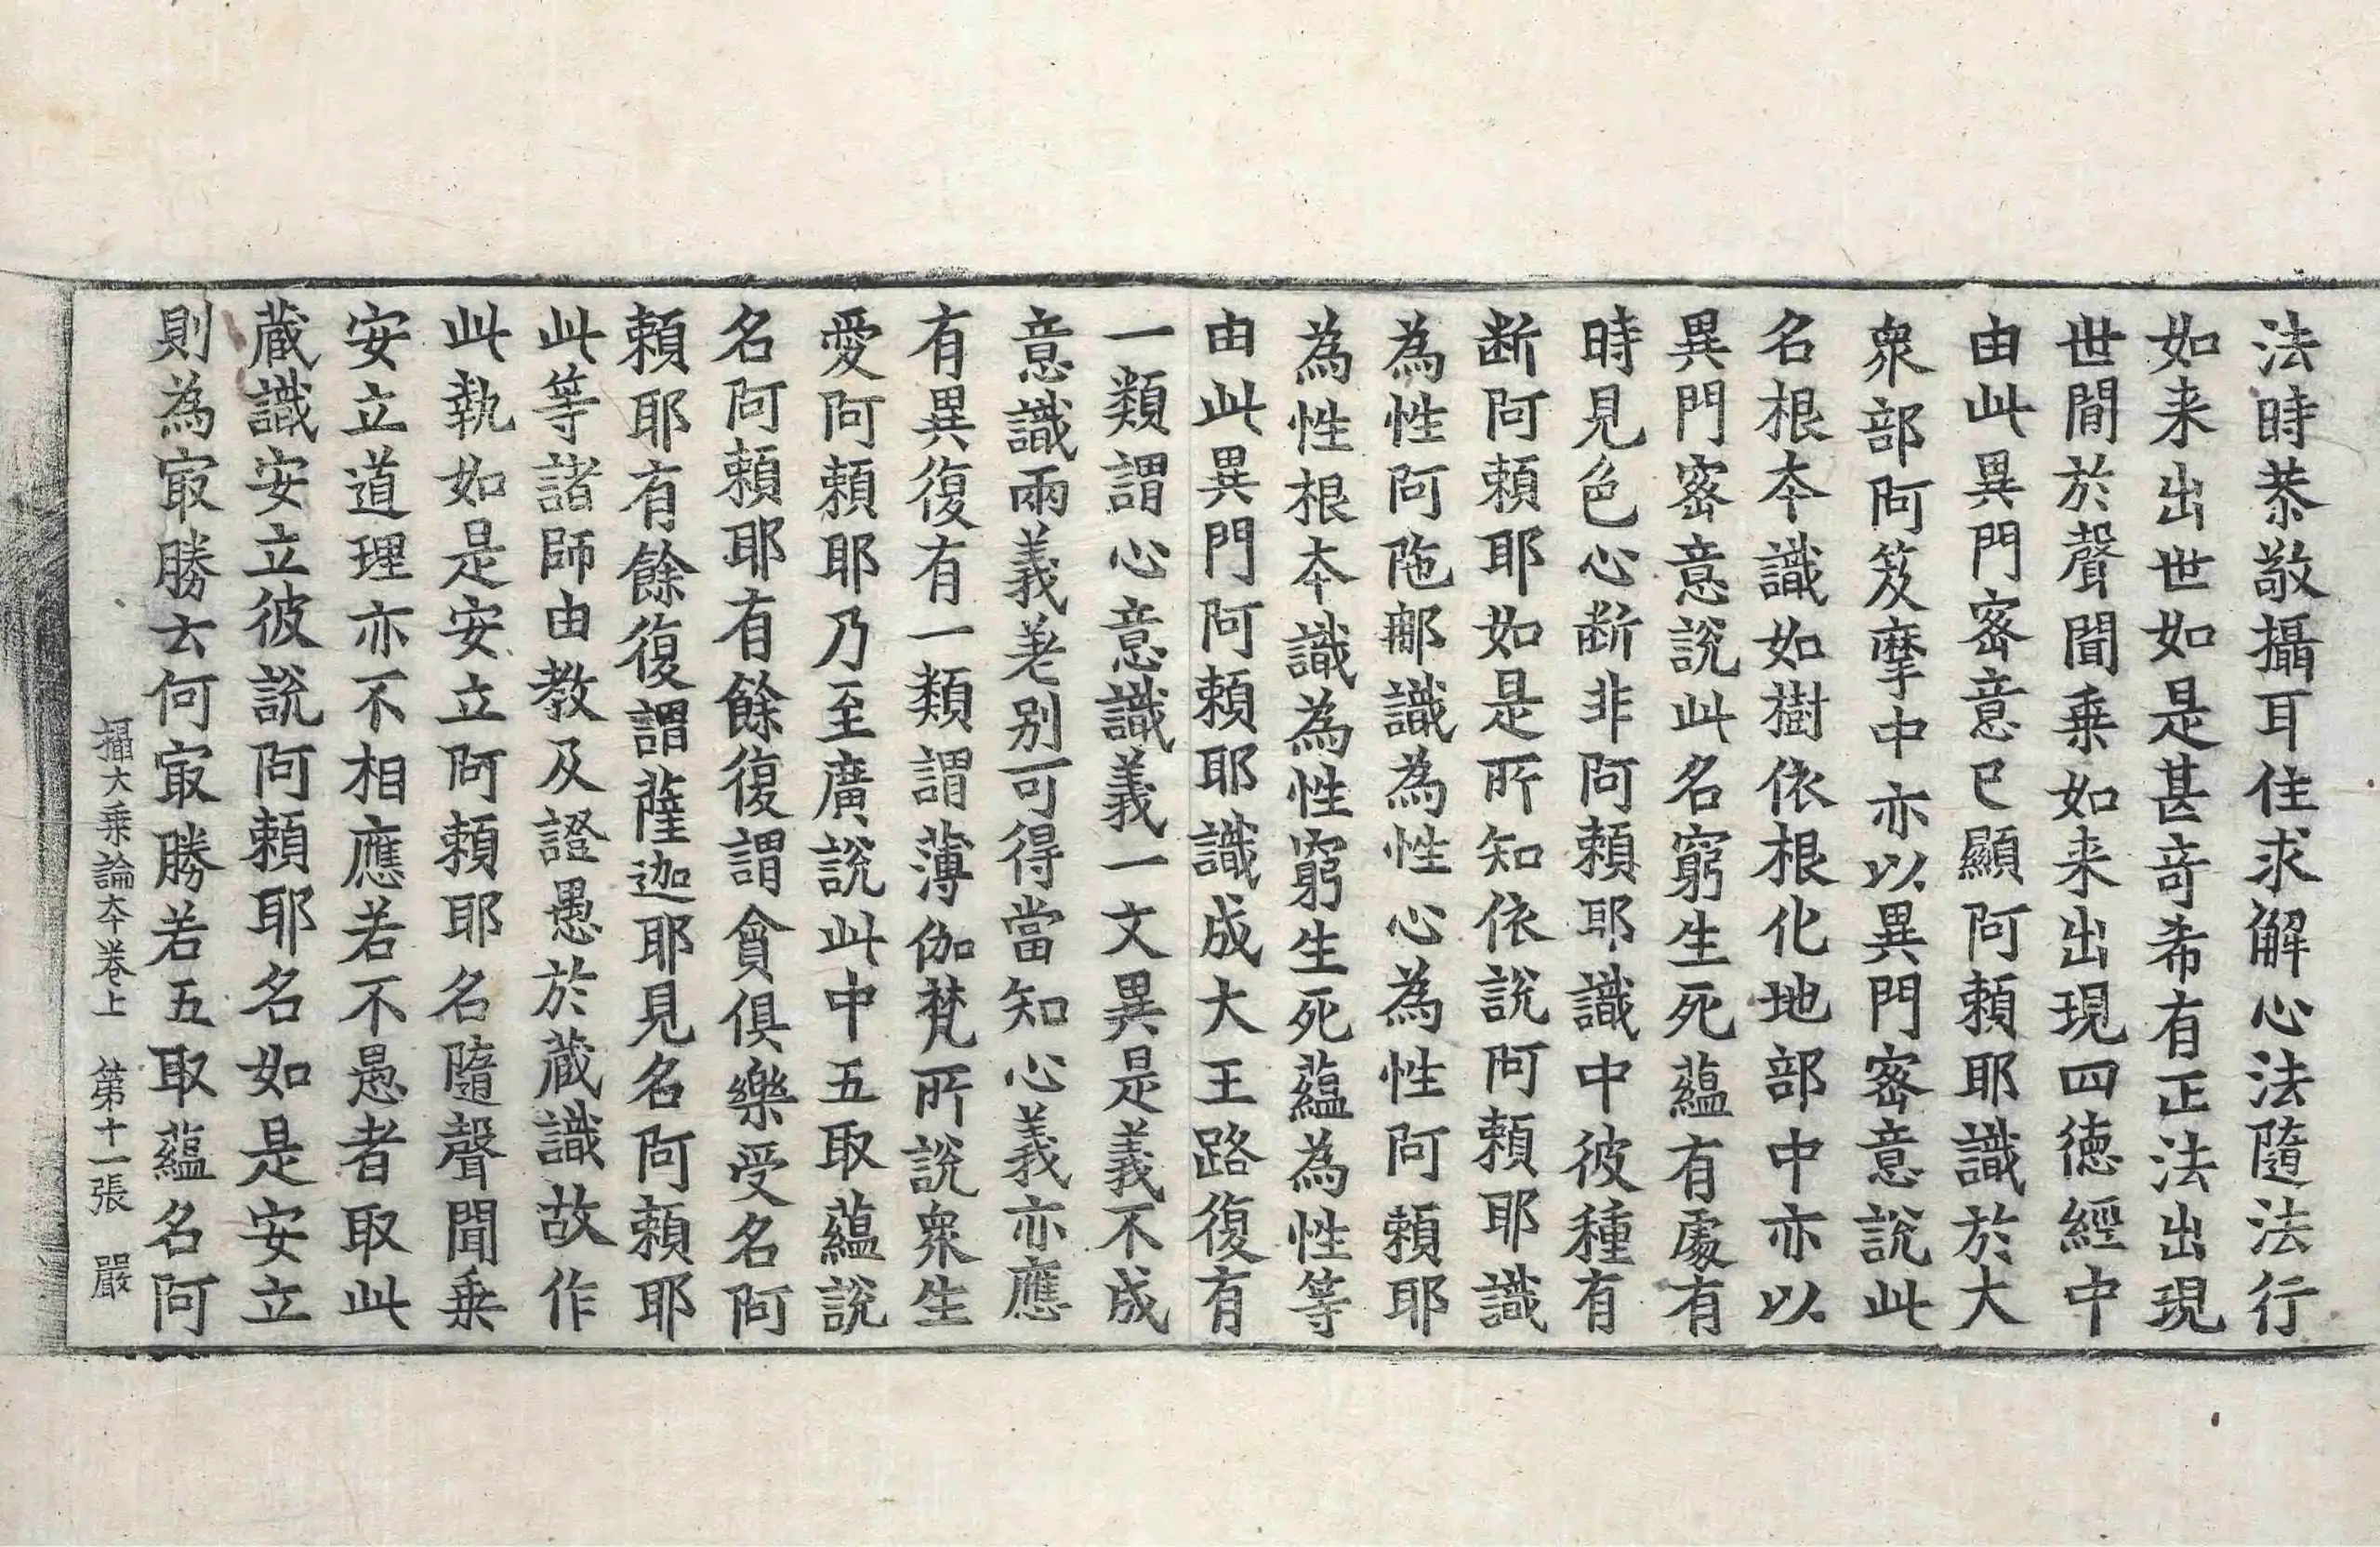 法時恭敬攝耳住求解心法隨法行
如来出世如是甚竒希有正法出現
世間於聲聞乗如来出現四徳經中
由此異門宻意已顯阿頼耶識於大
衆部阿笈摩中亦以異門宻意說此
名根本識如樹依根化地部中亦以
異門宻意說此名窮生死蘊有處有
時見色心断非阿頼耶識中彼種有
断阿頼耶如是所知依說阿頼耶識
為性阿陁那識為性心為性阿頼耶
為性根本識為性窮生死蘊為性等
由此異門阿頼耶識成大王路復有
一類謂心意識義一文異是義不成
意識兩義差别可得當知心義亦應
有異復有一類謂薄伽梵所說衆生
愛阿頼耶乃至廣說此中五取蘊說
名阿頼耶有餘復謂貪俱樂受名阿
頼耶有餘復謂薩迦耶見名阿頼耶
此等諸師由教及證愚於蔵識故作
此執如是安立阿頼耶名隨聲聞乗
安立道理亦不相應若不愚者取此
蔵識安立彼說阿頼耶名如是安立
則為㝡勝云何㝡勝若五取蘊名阿
攝大乗論本卷上 第十一張 嚴